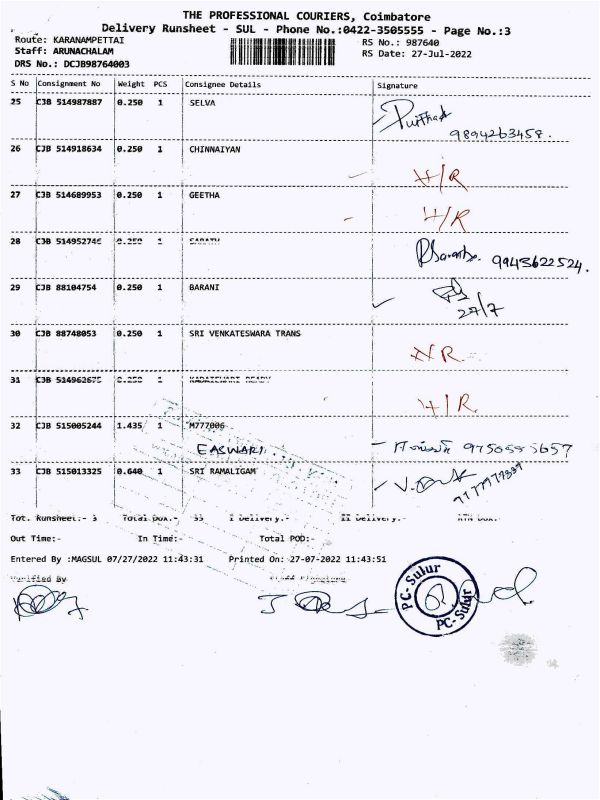 THE PROFESSIONAL COURIERS, Coimbatore
Delivery Runsheet - SUL - Phone No.:0422-3505555 - Page No.:3
Route: KARANAMPETTAI
RS No.: 987640
Staff: ARUNACHALAM
RS Date: 27-Jul-2022
DRS No.: DCJB98764003
S No Consignment No Weight PCS Consignee Details Signature
25 CJB 514987887 0.250 1 SELVA
9894263458.
26 CJB 514918634 0.250 1 CHINNAIYAN H/R
27 CJB 514689953 0.250 1 GEETHA H/R
28 CJB 514952746 0.250 1 SARATH 9943622524.
29 CJB 88104754 0.250 1 BARANI
27/7
30 CJB 88748053 0.250 1 SRI VENKATESWARA TRANS NR.
31 CJB 514962675 0.250 1 READY H/R
32 CJB 515005244 1.435 1 M777006
EASWARI
33 CJB 515013325 0.640 1 SRI RAMALIGAM
Tot. Runsheet:- 3 Total Box:- 33 I Delivery:- II Delivery:- RTN Box:-
Out Time:- In Time:- Total POD:-
Entered By :MAGSUL 07/27/2022 11:43:31 Printed On: 27-07-2022 11:43:51
Verified By
PC-Sulur
PC-Sulur